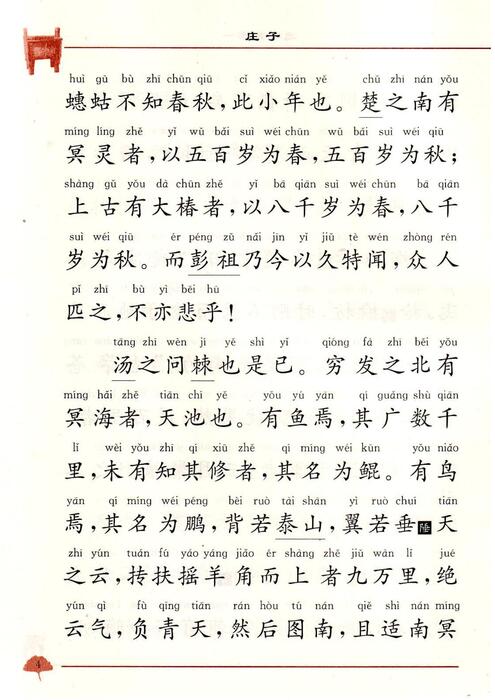 庄子
huì gū bù zhī chūn qiū cǐ xiǎo nián yě chǔ zhī nán yǒu
蟪蛄不知春秋，此小年也。楚之南有
míng líng zhě yǐ wǔ bǎi suì wéi chūn wǔ bǎi suì wéi qiū
冥灵者，以五百岁为春，五百岁为秋；
shàng gǔ yǒu dà chūn zhě yǐ bā qiān suì wéi chūn bā qiān
上古有大椿者，以八千岁为春，八千
suì wéi qiū ér péng zǔ nǎi jīn yǐ jiǔ tè wén zhòng rén
岁为秋。而彭祖乃今以久特闻，众人
pǐ zhī bù yì bēi hū
匹之，不亦悲乎！
tāng zhī wèn jí yě shì yǐ qióng fà zhī běi yǒu
汤之问棘也是已。穷发之北有
míng hǎi zhě tiān chí yě yǒu yú yān qí guǎng shù qiān
冥海者，天池也。有鱼焉，其广数千
lǐ wèi yǒu zhī qí xiū zhě qí míng wéi kūn yǒu niǎo
里，未有知其修者，其名为鲲。有鸟
yān qí míng wéi péng bèi ruò tài shān yì ruò chuí tiān
焉，其名为鹏，背若泰山，翼若垂天
zhī yún tuán fú yáo yáng jiǎo ér shàng zhě jiǔ wàn lǐ jué
之云，抟扶摇羊角而上者九万里，绝
yún qì fù qīng tiān rán hòu tú nán qiě shì nán míng
云气，负青天，然后图南，且适南冥
4